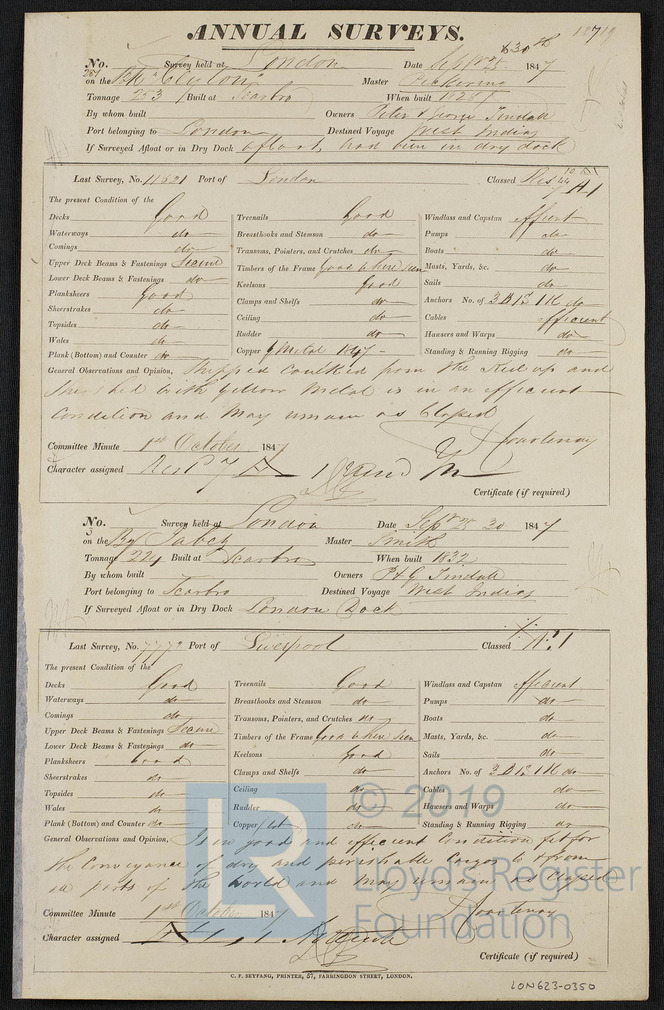 ANNUAL SURVEYS.
630
No. Survey held at London Date Septr 25 1847
on the Bk "Ceylon" Master Pickering
Tonnage 253 Built at Scarbro When built
By whom built Owners Peter & George Tindall
Port belonging to London Destined Voyage West Indies
If Surveyed Afloat or in Dry Dock afloat, had been in dry dock
Last Survey, No. 11621 Port of London Classed Rest A1
The present Condition of the
Decks Good Treenails Good Windlass and Capstan efficient
Waterways do Breasthooks and Stemson do Pumps do
Comings do Transoms, Pointers, and Crutches do Boats do
Upper Deck Beams & Fastenings Secure Timbers of the Frame Good where seen Masts, Yards, &c. do
Lower Deck Beams & Fastenings do Keelsons good Sails do
Planksheers Good Clamps and Shelfs do Anchors No. of 3 B 1 S 1 K do
Sheerstrakes do Ceiling do Cables efficient
Topsides do Rudder do Hawsers and Warps do
Wales do Copper Y Metal 1847 Standing & Running Rigging do
Plank (Bottom) and Counter do
General Observations and Opinion, Stripped caulked from the Keel up and
Sheathed with yellow Metal is in an efficient
Condition and May remain as Classed
Courtenay
Committee Minute 1st October 1847
Character assigned Rest 7 A 1
Certificate (if required)
No. Survey held at London Date Septr 25 30 1847
3
on the Bg Tabely Master Smith
Tonnage 224 Built at Scarbro When built 1832
By whom built Owners P & G Tindall
Port belonging to Scarbro Destined Voyage West Indies
If Surveyed Afloat or in Dry Dock London Dock
Last Survey, No. 7772 Port of Liverpool Classed Æ 1
The present Condition of the
Decks Good Treenails Good Windlass and Capstan efficient
Waterways do Breasthooks and Stemson do Pumps do
Comings do Transoms, Pointers, and Crutches do Boats do
Upper Deck Beams & Fastenings Secure Timbers of the Frame Good where seen Masts, Yards, &c. do
Lower Deck Beams & Fastenings do Keelsons Good Sails do
Planksheers Good Clamps and Shelfs do Anchors No. of 3 B 1 S 1 K do
Sheerstrakes do Ceiling do Cables do
Topsides do Rudder do Hawsers and Warps do
Wales do Copper do Standing & Running Rigging do
Plank (Bottom) and Counter do
General Observations and Opinion, Is in good and efficient Condition fit for
the Conveyance of dry and perishable Cargos to & from
all parts of the World and May remain as Classed
Courtenay
Committee Minute 1st October 1847
Character assigned Æ 1
Certificate (if required)
C. F. SEYFANG, PRINTER, 57, FARRINGDON STREET, LONDON.
LON623-0350
LR
© 2019
Lloyd's Register
Foundation